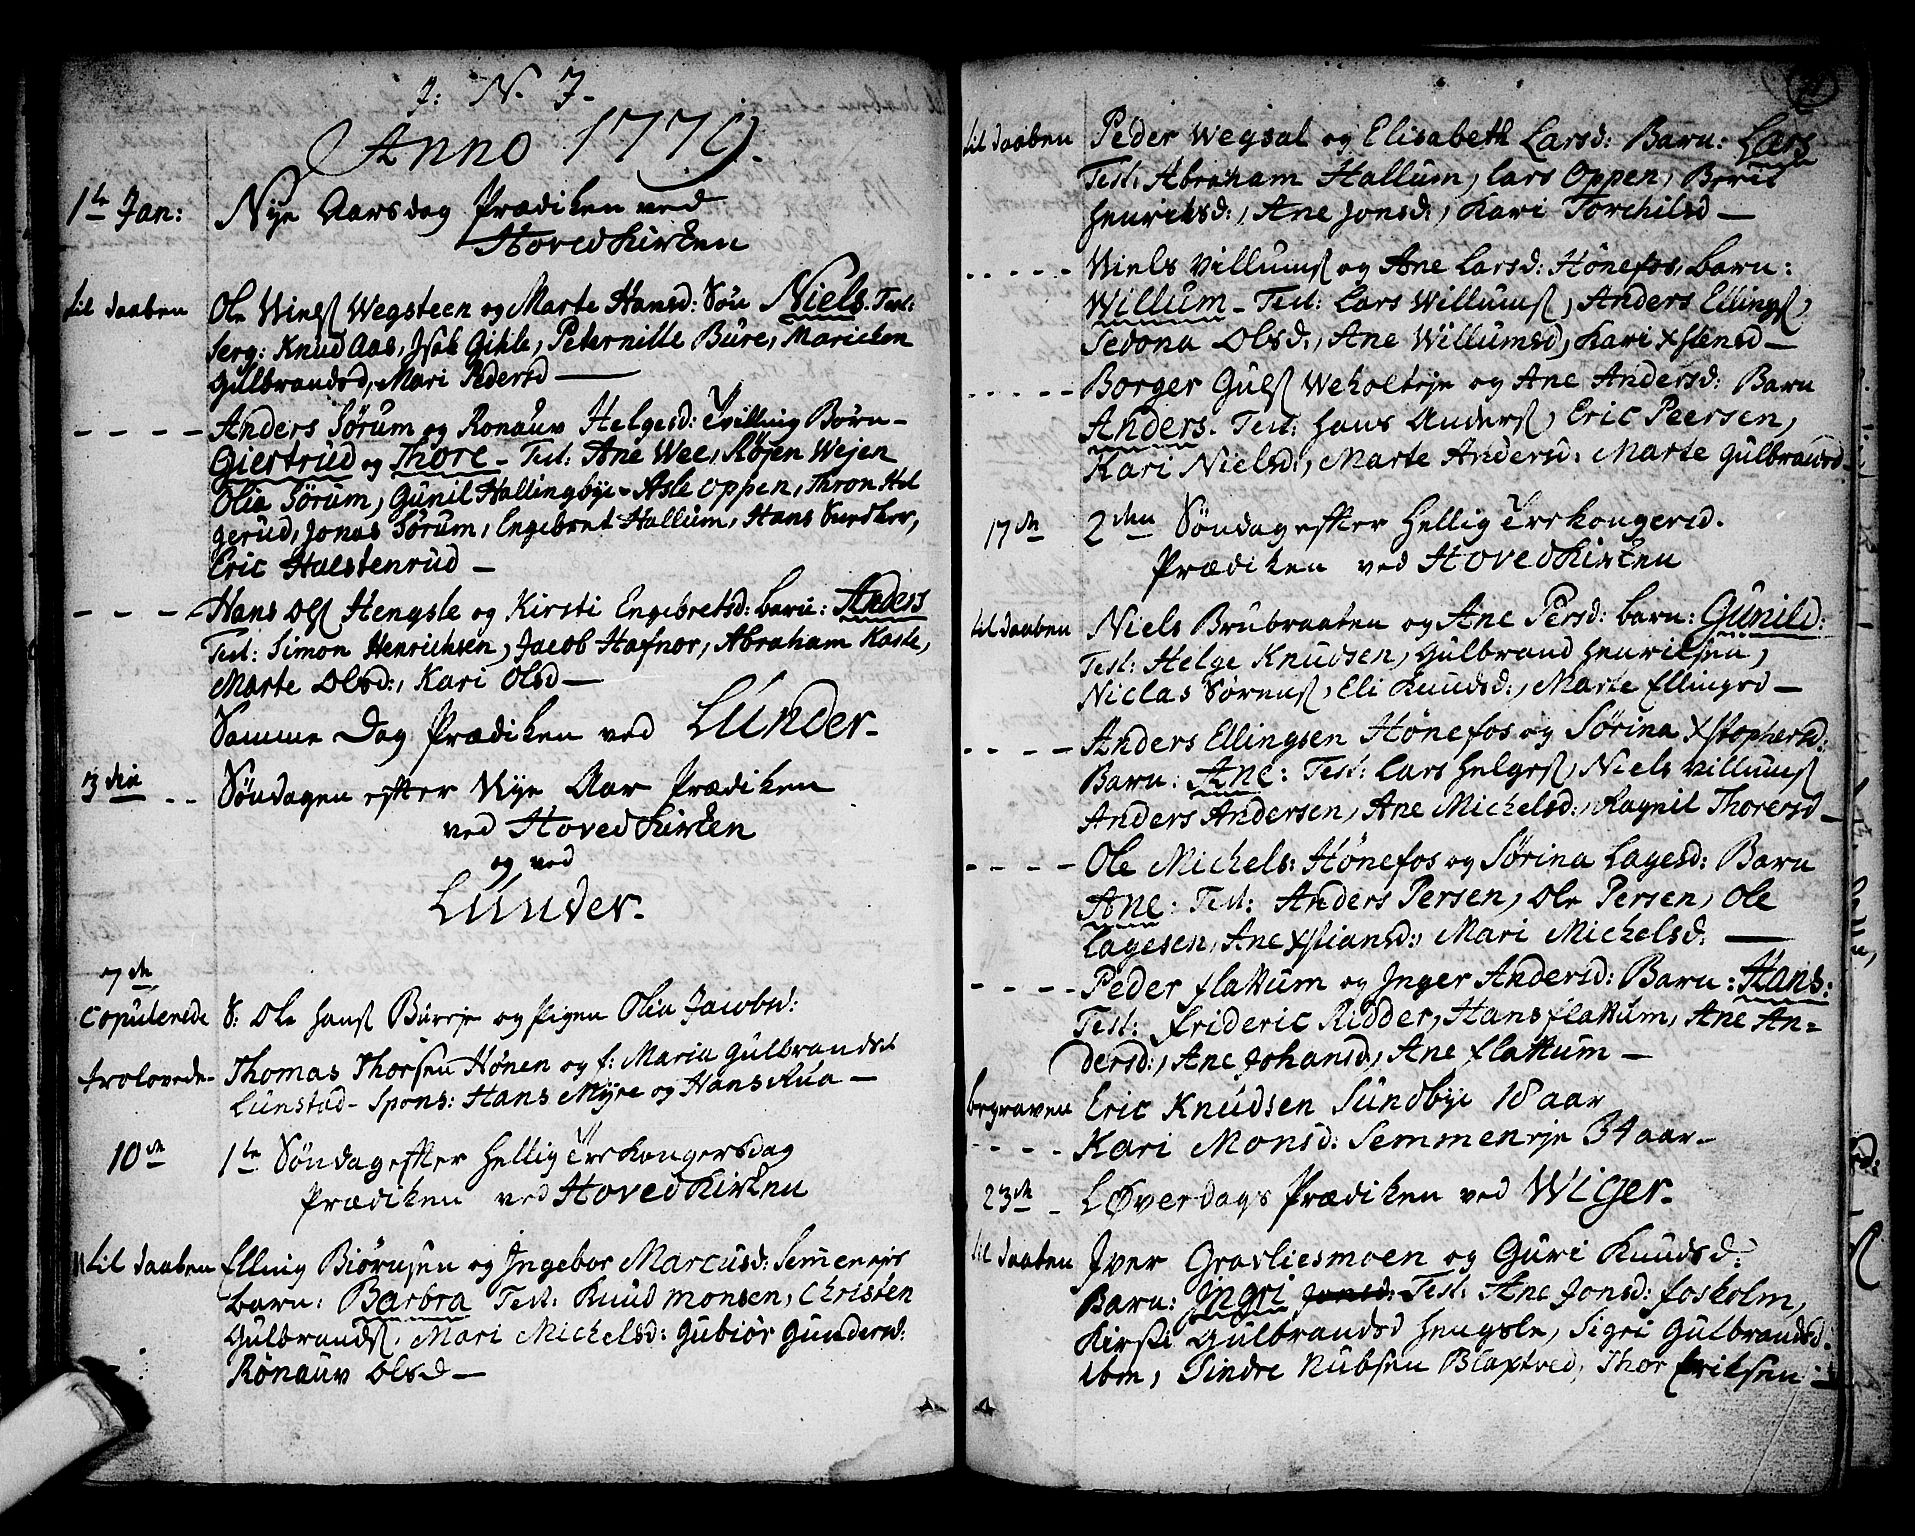 J: N. J.
Anno 1779.
1te Jan: Nye Aarsdag Prædiken ved
Hoved Kirken
til daaben Ole Niels Wegsteen og Marte Hansd: Søn Niels. Test:
Serg: Knud Aas, Isak Gihle, Peternille Bure, Maricken
Gulbrandsd, Mari Pedersd —
- - - - Anders Sørum og Ronauv Helgesd: Tvilling Børn -
Giertrud og Thore - Test: Ane Wee, Røjen Wejen
Olia Sørum, Gunil Hallingbye - Asle Oppen, Thron Hel
gerud, Jonas Sørum, Engebret Hallum, Hans
Eric Halstenrud —
- - - Hans Ols Hengsle og Kirsti Engebretsd: barn: Anders
Test: Simon Henrichsen, Jacob Hafnor, Abraham Kaste,
Marte Olsd:, Kari Olsd —
Samme Dag Prædiken ved Lunder.
3die - - Søndagen efter Nye Aar Prædiken
ved Hoved Kirken
og ved
Lunder.
7de
Copulerede S: Ole Hans Burrje og Pigen Olia Jacobsd:
trolovede - Thomas Thorsen Hønen og f: Maria Gulbrandsd
Lunstad - Spons: Hans Myre og Hans Rua —
10de 1te Søndag efter Hellig Trekongersdag
Prædiken ved Hoved Kirken
til daaben Elling Biørnsen og Ingebor Marcusd: Semmenejer
barn: Barbra Test: Knud Monsen, Christen
Gulbrands, Mari Michelsd: Gubiør Gundersd:
Ronauv Olsd —
til daaben Peder Wegsal og Elisabeth Larsd: Barn: Lars
Test: Abraham Hallum, Lars Oppen, Berit
Henriksd:, Ane Jonsd:, Kari Torchilsd —
- - - - - Niels Villums og Ane Larsd: Hønefos, barn:
Willum - Test: Lars Willums, Anders Ellings,
Sedona Olsd:, Ane Willumsd, Kari Xstensd —
- - - - - Borger Guls Weholteje og Ane Andersd: Barn
Anders. Test: Hans Anders, Eric Peersen,
Kari Nielsd:, Marte Andersd: Marte Gulbrandsd —
17de 2den Søndag efter Hellig Trekongersd.
Prædiken ved Hoved Kirken
til daaben Niels Brubraaten og Ane Persd: barn: Gunild:
Test: Helge Knudsen, Gulbrand Henriksen,
Niclas Sørens, Eli Knudsd:, Marte Ellingsd —
- - - - Anders Ellingsen Hønefos og Sørina Xstophersd:
Barn: Ane: Test: Lars Helges, Niels Villums
Anders Andersen, Ane Michelsd:, Ragnil Thoresd —
- - - - Ole Michels: Hønefos og Sørina Lagesd: Barn
Ane: Test: Anders Persen, Ole Persen, Ole
Lagesen, Ane Xstiansd:, Mari Michelsd: —
- - - - Peder Flattum og Inger Andersd: Barn: Hans:
Test: Frideric Ridder, Hans Flattum, Ane An=
dersd:, Ane Johansd, Ane Flattum —
begraven Eric Knudsen Sundbye 18 aar
- - - - Kari Monsd: Semmeneje 34 aar -
23de - Løverdags Prædiken ved Wiger.
til daaben Iver Gravliesmoen og Guri Knudsd:
Barn: Ingri Jonsd: Test: Ane Jonsd: Foskolm,
Kirsti Gulbrandsd Hengsle, Sigri Gulbrandsd.
ibm, Sindre Nubsen Blaxtved, Thor Eriksen :